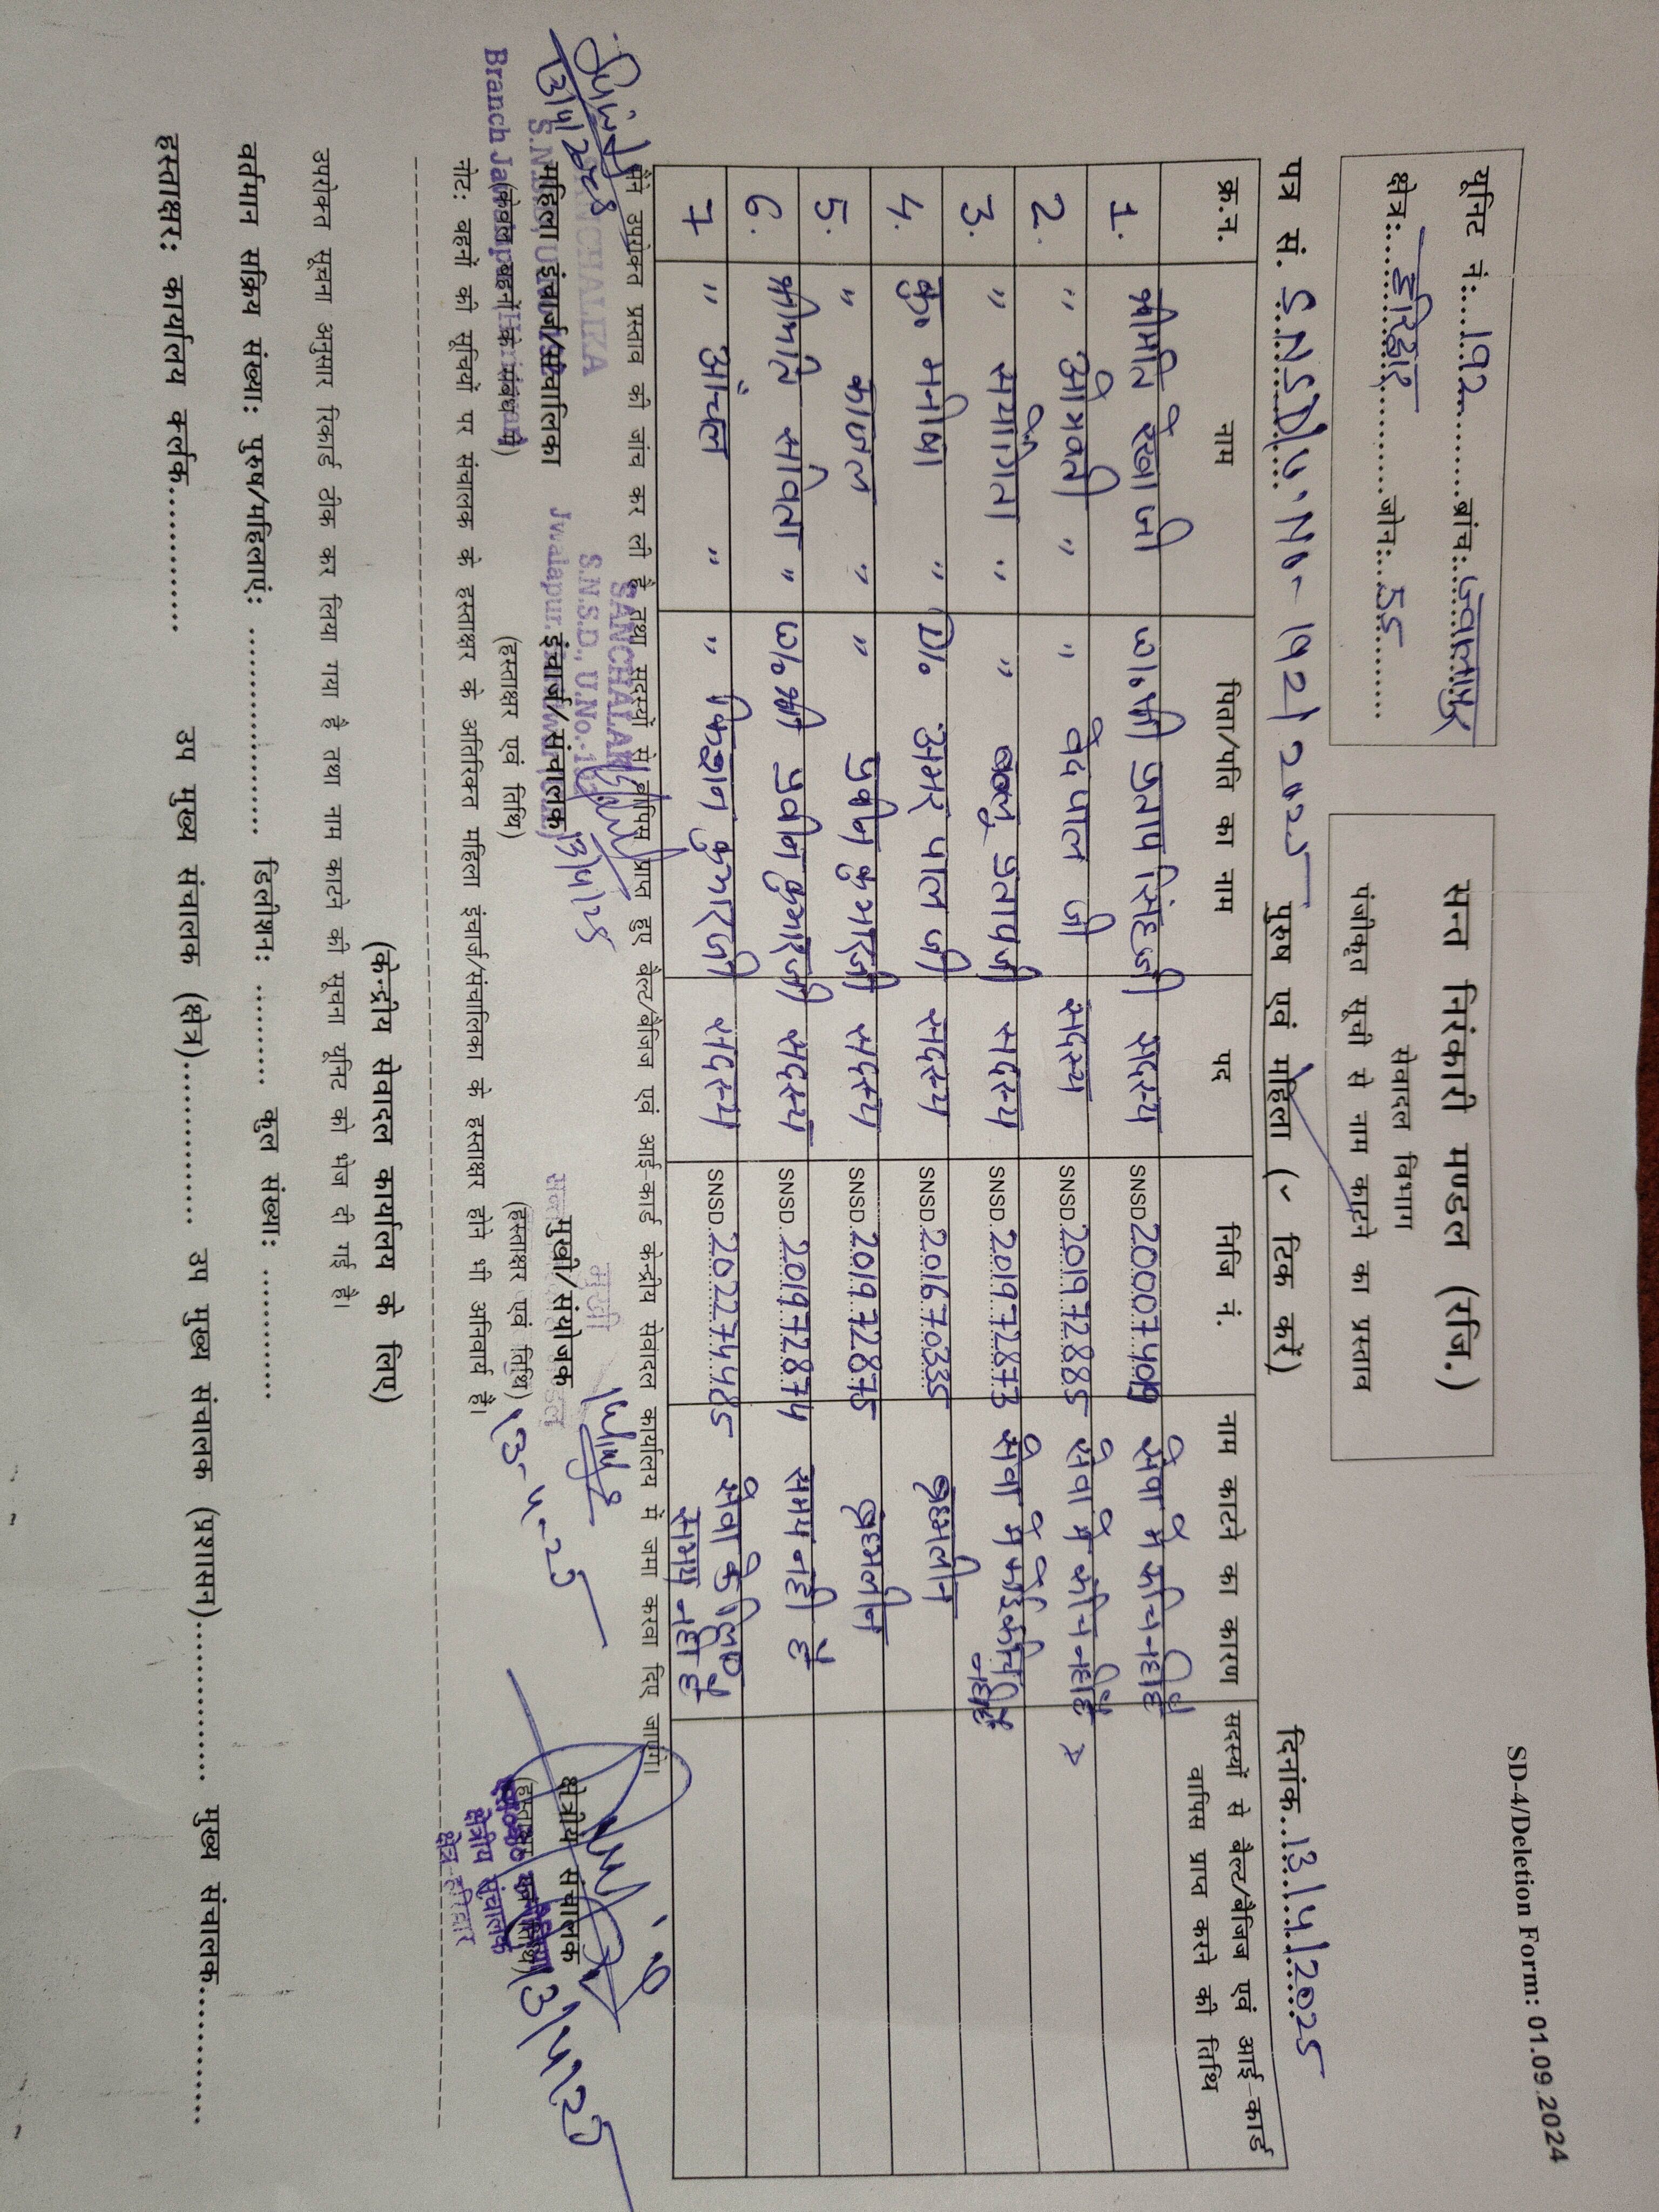 SD-4/Deletion Form: 01.09.2024
यूनिट नं:....192............ब्रांच:..ज्वालापुर
क्षेत्र:...हरिद्वार............जोन:..55..........
सन्त निरंकारी मण्डल (रजि.)
सेवादल विभाग
पंजीकृत सूची से नाम काटने का प्रस्ताव
पत्र सं. S.N.S.D/U.No-192/2025 पुरुष एवं महिला (✓ टिक करें) दिनांक...13/4/2025
क्र.न. नाम पिता/पति का नाम पद निजि नं. नाम काटने का कारण सदस्यों से बेल्ट/बैजिज एवं आई-कार्ड वापिस प्राप्त करने की तिथि
1. श्रीमति रेखा जी W/o श्री प्रताप सिंह जी सदस्य SNSD.20007409 सेवा मे रूचि नही है
2. " ओमवती " " वेद पाल जी सदस्य SNSD.201972885 सेवा मे रूचि नही है
3. " संयोगिता " " प्रताप जी सदस्य SNSD.201972873 सेवा मे कोई रूचि नही है
4. कु० मनीषा " D/o अमर पाल जी सदस्य SNSD.201670335 ब्रह्मलीन
5. " काजल " " प्रवीन कुमार जी सदस्य SNSD.201972875 ब्रह्मलीन
6. श्रीमति सविता " W/o श्री प्रवीन कुमार जी सदस्य SNSD.201972874 समय नही है
7 " आंचल " " किशन कुमार जी सदस्य SNSD.202274485 सेवा के लिए समय नही है
मैंने उपरोक्त प्रस्ताव की जांच कर ली है तथा सदस्यों से वापिस प्राप्त हुए बेल्ट/बैजिज एवं आई-कार्ड केन्द्रीय सेवादल कार्यालय में जमा करवा दिए जाएंगे।
13/4/2025
SANCHALIKA
S.N.S.D., U.No.-192
Branch Jwalapur
महिला इंचार्ज/संचालिका
(केवल बहनों के संबंध में)
SANCHALAK
S.N.S.D., U.No.-192
Jwalapur
13/4/25
इंचार्ज/संचालक
(हस्ताक्षर एवं तिथि)
मुखी
मुखी/संयोजक
(हस्ताक्षर एवं तिथि)
13-4-25
क्षेत्रीय संचालक
(हस्ताक्षर एवं तिथि)
क्षेत्रीय संचालक
क्षेत्र-हरिद्वार
13/4/25
नोट: बहनों की सूचियों पर संचालक के हस्ताक्षर के अतिरिक्त महिला इंचार्ज/संचालिका के हस्ताक्षर होने भी अनिवार्य है।
(केन्द्रीय सेवादल कार्यालय के लिए)
उपरोक्त सूचना अनुसार रिकार्ड ठीक कर लिया गया है तथा नाम काटने की सूचना यूनिट को भेज दी गई है।
वर्तमान सक्रिय संख्या: पुरुष/महिलाएं: ........................ डिलीशन: ............ कुल संख्या: ...............
हस्ताक्षर: कार्यालय कर्तक.................. उप मुख्य संचालक (क्षेत्र).................... उप मुख्य संचालक (प्रशासन).................... मुख्य संचालक..................